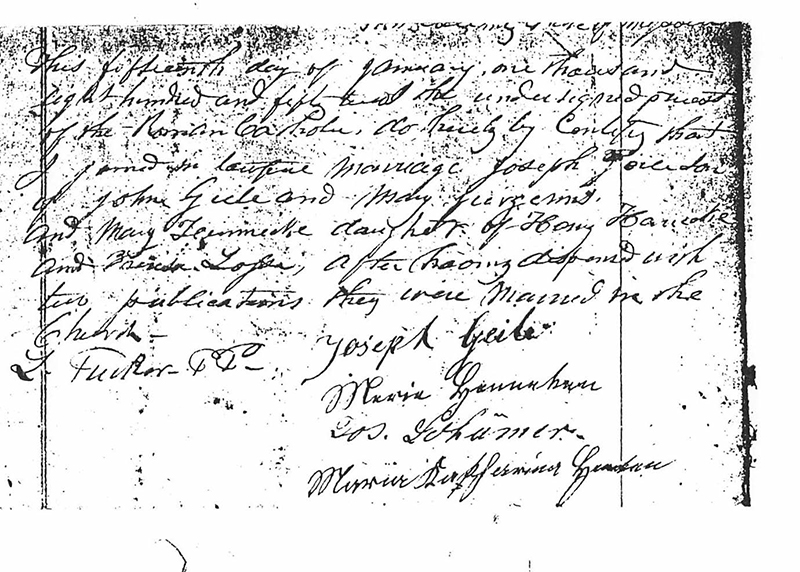 This fifteenth day of January, one thousand
Eight hundred and fifty the undersigned priest
of the Roman Catholic, do hereby by Certify that
I joined in marriage Joseph
of John Geile and Mary Jurgems.
and Mary daughter of Hany
and Lopa, after having dispensd with
two publications they were Married in the
Church
L. Tucker PP
Joseph Geile
Maria Henneken
Jos. Schümer
Maria Katharina